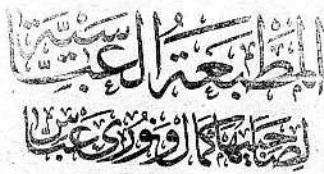 المطبعة العباسية
لصاحبيها كمال وفوزي عباس